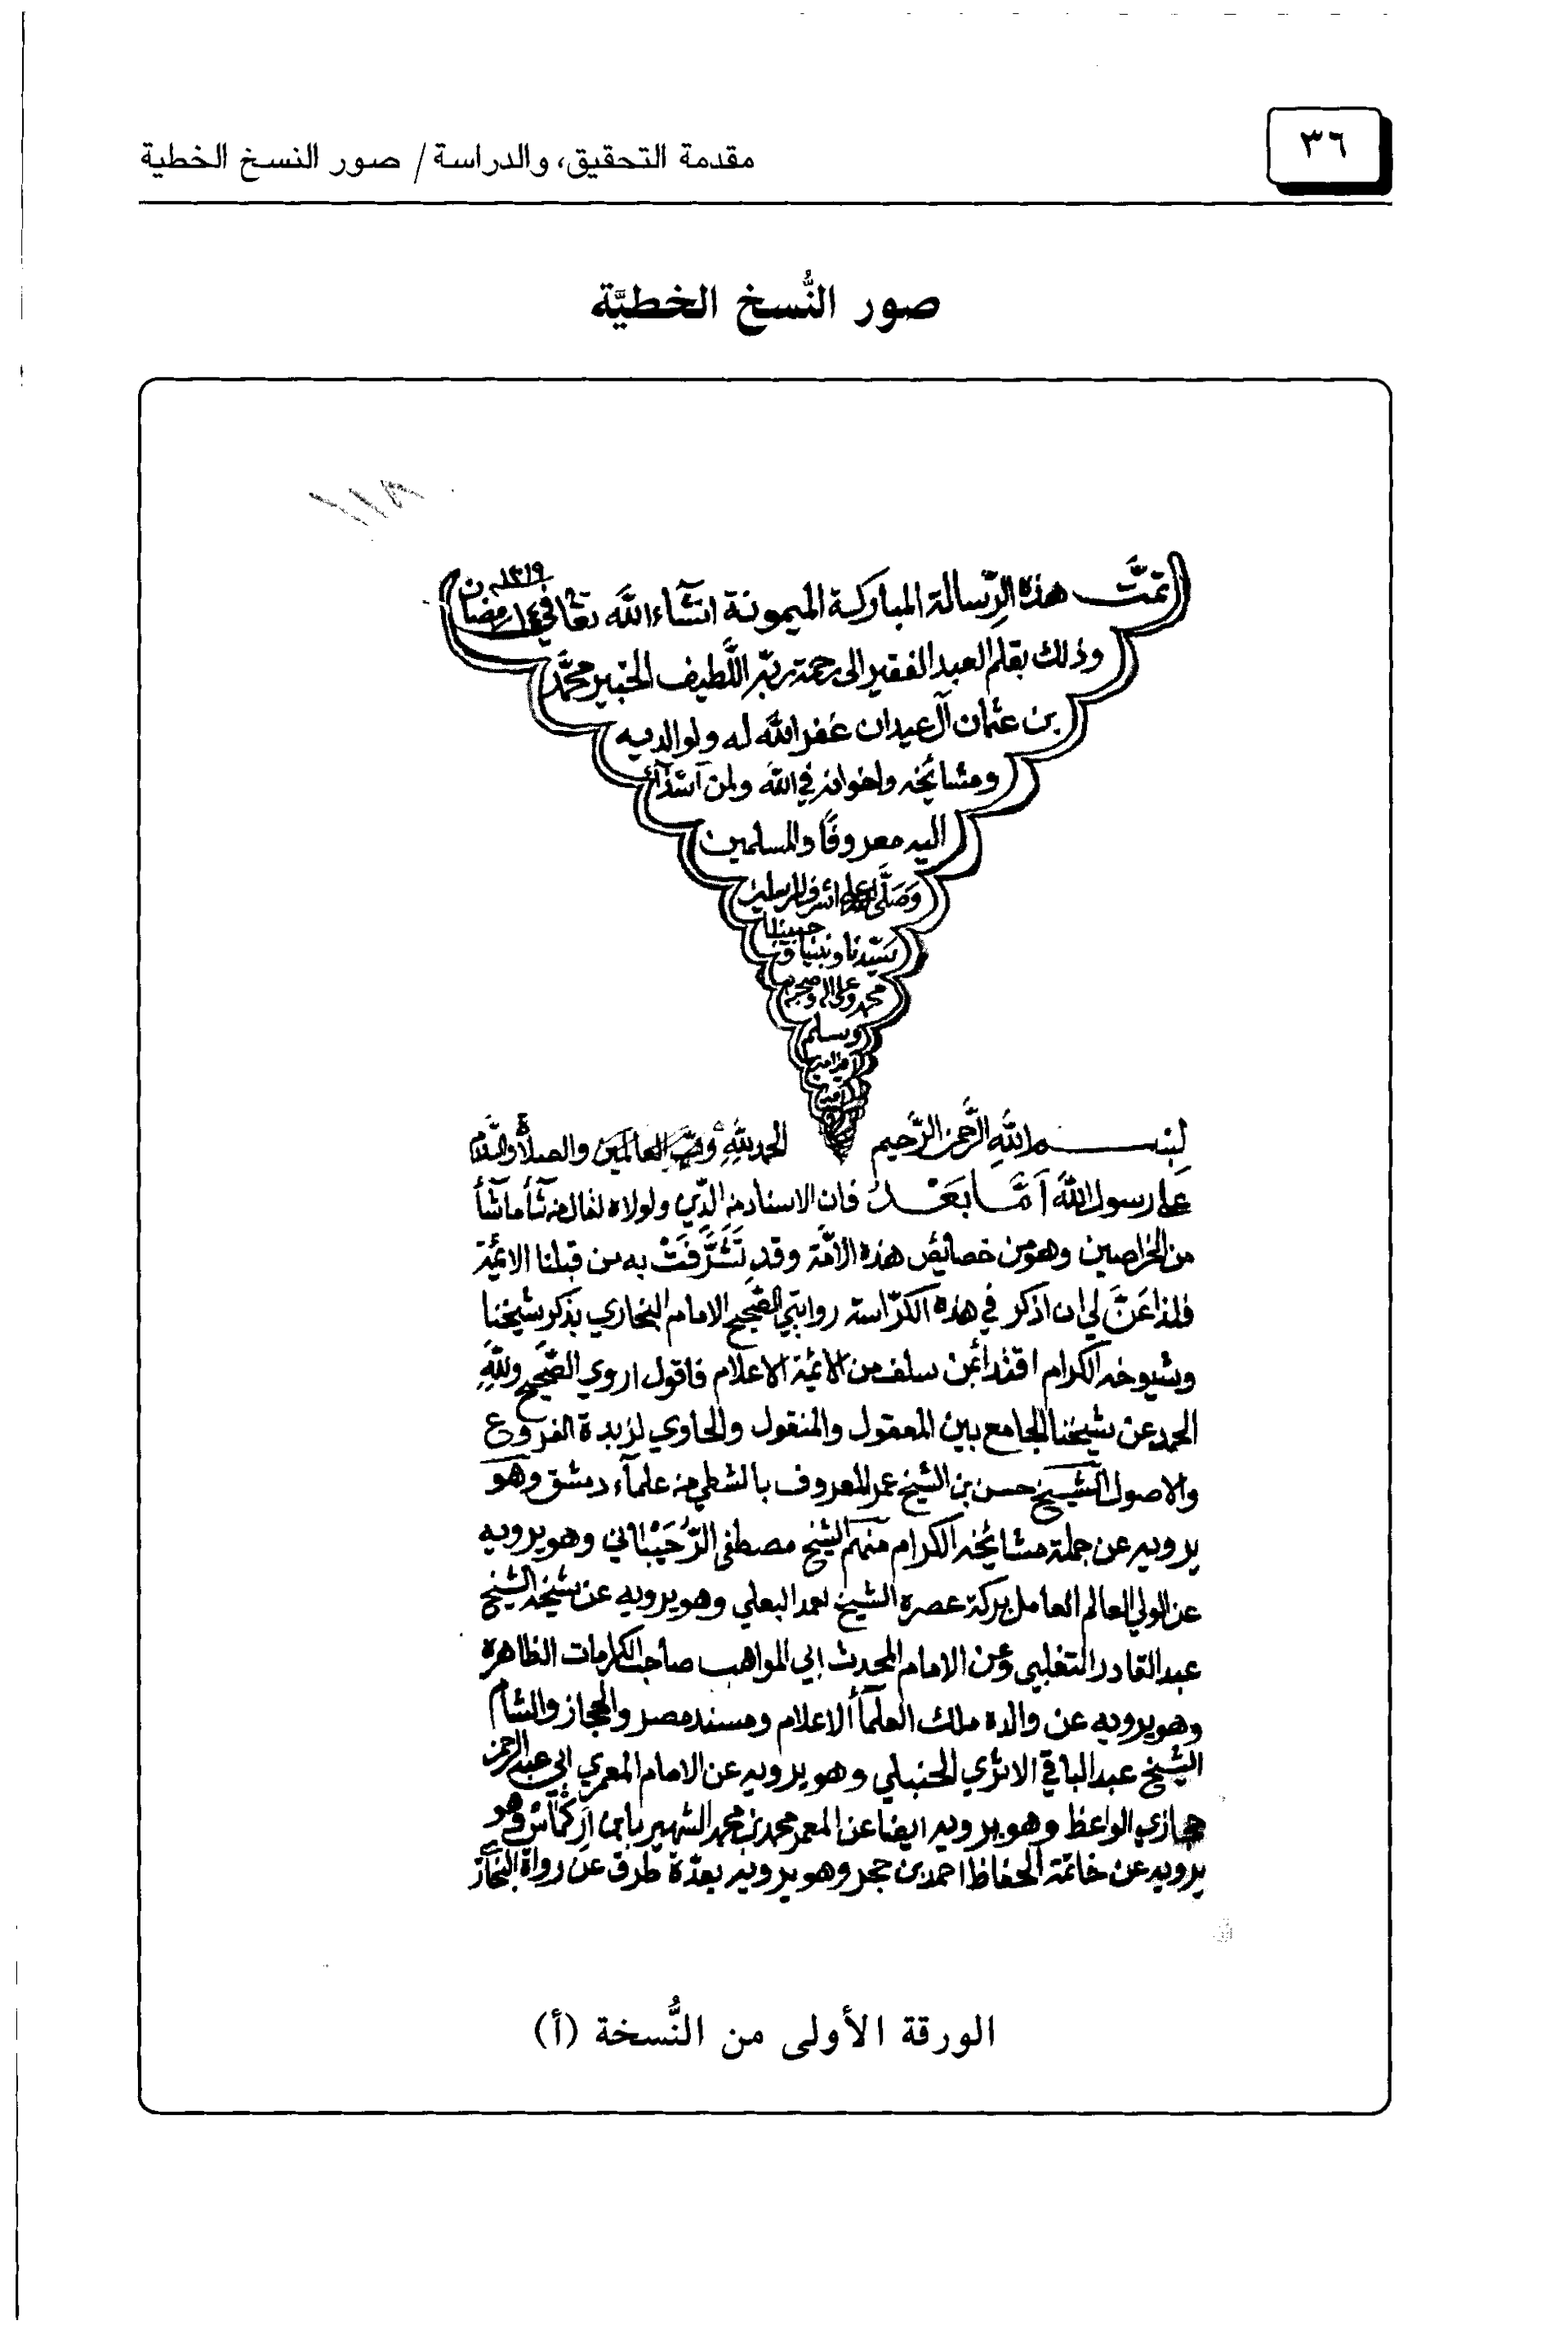 ٣٦
مقدمة التحقيق، والدراسة / صور النسخ الخطية
صور النُّسخ الخطيَّة
١١٨
تمَّت هذه الرِّسالة المباركة الميمونة انشاء اللَّه تعالى في ١٤ رمضان ١٣١٩
وذلك بقلم العبد الفقير الى رحمة ربّه اللَّطيف الخبير محمَّد
بن عثمان آل عيدان غفر اللَّه له ولوالديه
ومشائخه واخوانه في اللَّه ولمن
اليه معروفًا والمسلمين
وَصَلَّى اشرف المرسلين
سيّدنا ونبينا وحبيبنا
محمد وعلى اله وصحبه
وسلم
بسم اللَّهِ الرَّحمن الرَّحيم الحمد للَّهِ ربّ العالمين والصلاة والسَّلام
على رسول اللَّه أمَّا بَعْد فان الاسناد من الدّين ولولاه لقال من شأ ما شأ
من الخراصين وهو من خصائص هذه الأمّة وقد تَشَرَّفَتْ به من قبلنا الائمّة
فلذا عَنَّ لي ان اذكر في هذه الكرّاسة روايتي الصّحيح الامام البخاري بذكر شيخنا
وشيوخه الكرام اقتدأ بمن سلف من الائمّة الاعلام فاقول اروي الصَّحيح وللَّهِ
الحمد عن شيخنا الجامع بين المعقول والمنقول والحاوي لزبدة الفروع
والاصول الشيخ حسن بن الشيخ عمر المعروف بالشطي من علمآء دمشق وهو
يرويه عن جملة مشائخه الكرام منهم الشيخ مصطفى الرُّحَيْباني وهو يرويه
عن الولي العالم العامل بركة عصره الشيخ احمد البعلي وهو يرويه عن شيخه الشيخ
عبد القادر التغلبي وعن الامام المحدث ابي المواهب صاحب الكرامات الظاهرة
وهو يرويه عن والده ملك العلمأ الاعلام ومسند مصر والحجاز والشام
الشيخ عبد الباقي الاثري الحنبلي وهو يرويه عن الامام المعمري ابي عبد الرحمن
حجازي الواعظ وهو يرويه ايضا عن المعمر محمد بن محمد الشهير بابن اركماس وهو
يرويه عن خاتمة الحفاظ احمد بن حجر وهو يرويه بعدّة طرق عن رواة
الورقة الأولى من النُّسخة (أ)